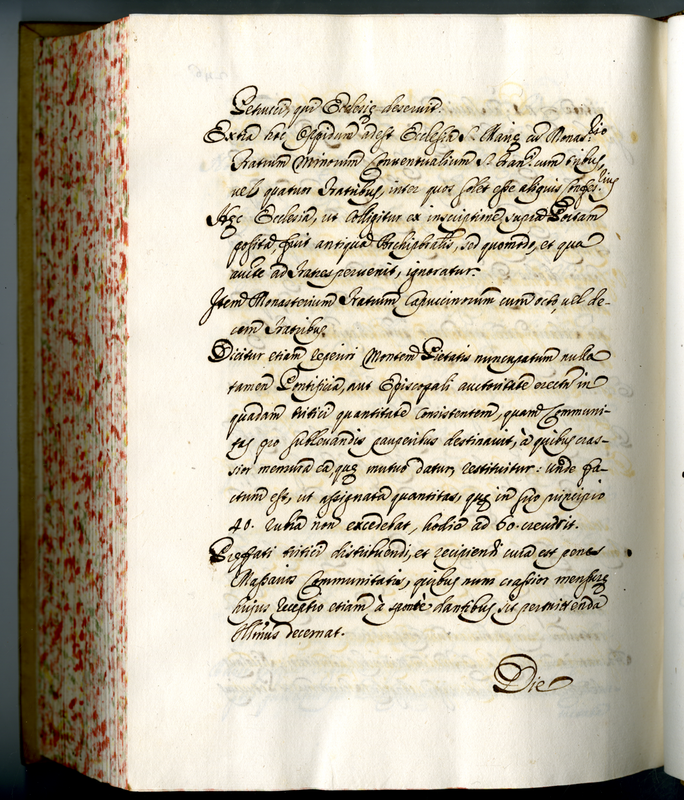 Petrucij, qui Ecclesię deservit.
Extra hoc Oppidum adest Ecclesia S. Marię cum Monas.rio
Fratrum Minorum Conventualium S. Fran.ci cum tribus,
vel quatuor Fratribus, inter quos solet esse aliquis Confes.rius
Hęc Ecclesia, ut colligitur ex inscriptione supra Portam
posita, fuit antiqua Archipbralis, sed quomodo, et qua
avite ad Fratres pervenit, ignoratur.
Item Monasterium Fratrum Capuccinorum cum octo, vel de-
cem Fratribus.
Dicitur etiam reperiri Montem Pietatis nuncupatum nulla
tamen Pontificia, aut Episcopali auctoritate erectum in
quadam tritici quantitate consistentem, quam Communi-
tas pro sublevandis pauperibus destinavit, à quibus cras-
sior mensura ea quę mutuo datur, restituitur: unde fa-
ctum est, ut assignata quantitas, quę in suo principio
40. rubra non excedebat, hodie ad 60. creverit.
Pręfati tritici distribuendi, et recipiendi cura est penes
Massarios Communitatis, quibus num crassior mensurę
hujus receptio etiam à sponte dantibus sit permittenda
Illmus decernat.
Die